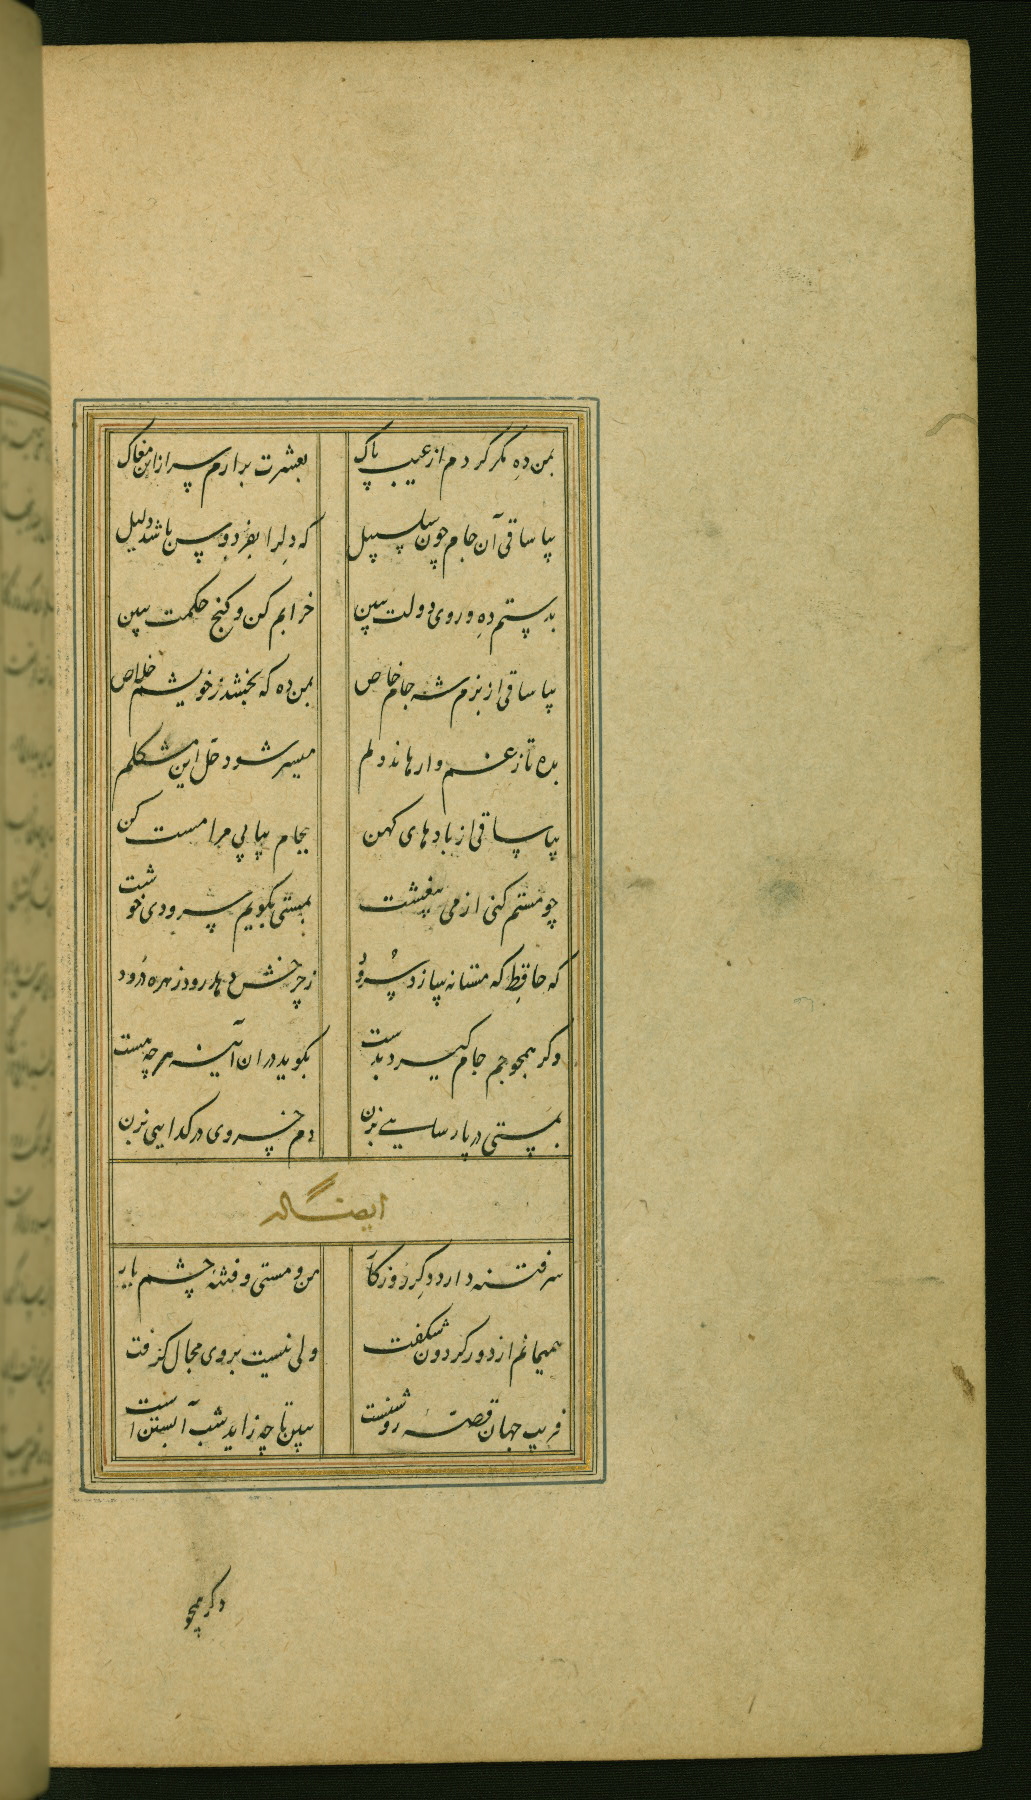 بمن ده مگر گردم از عیب پاک بعشرت برارم سر از این مغاک
بیا ساقی آن جام چون سلسبیل که دل را بفردوس باشد دلیل
بدستم ده و روی دولت ببین خرابم کن و گنج حکمت ببین
بیا ساقی از بزم شه جام خاص بمن ده که بخشد ز خویشم خلاص
بده تا ز غم وارهاند دلم میسر شود حل این مشکلم
بیا ساقی از بادهای کهن بجام پیاپی مرا مست کن
چو مستم کنی از می بیغشت بمستی بگویم سرودی خوشت
که حافظ که مستانه سازد سرود ز چرخش دهد رود زهره درود
دگر همچو جم جام گیرد بدست بگوید در ان آئینه هرچه هست
بمستی در پارسایی بزن دم خسروی در گدایی بزن
ایضا له
سر فتنه دارد دگر روزگار من و مستی و فتنه چشم یار
همیمانم از دور گردون شگفت ولی نیست بر وی مجال گرفت
فریب جهان قصه روشنست ببین تا چه زاید شب آبستن است
دگر همچو